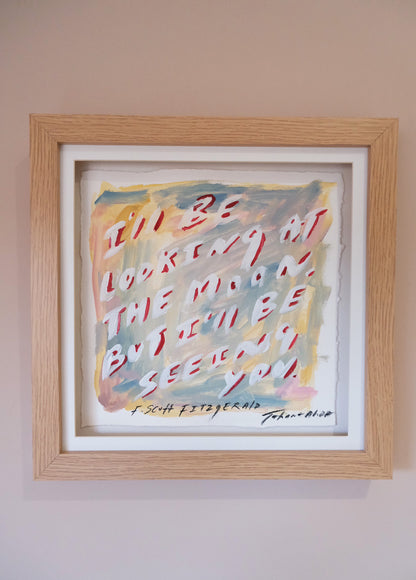 I'll BE
LOOKING AT
THE MOON.
BUT I'll BE
SEEING
YOU.
F. Scott FITZGERALD